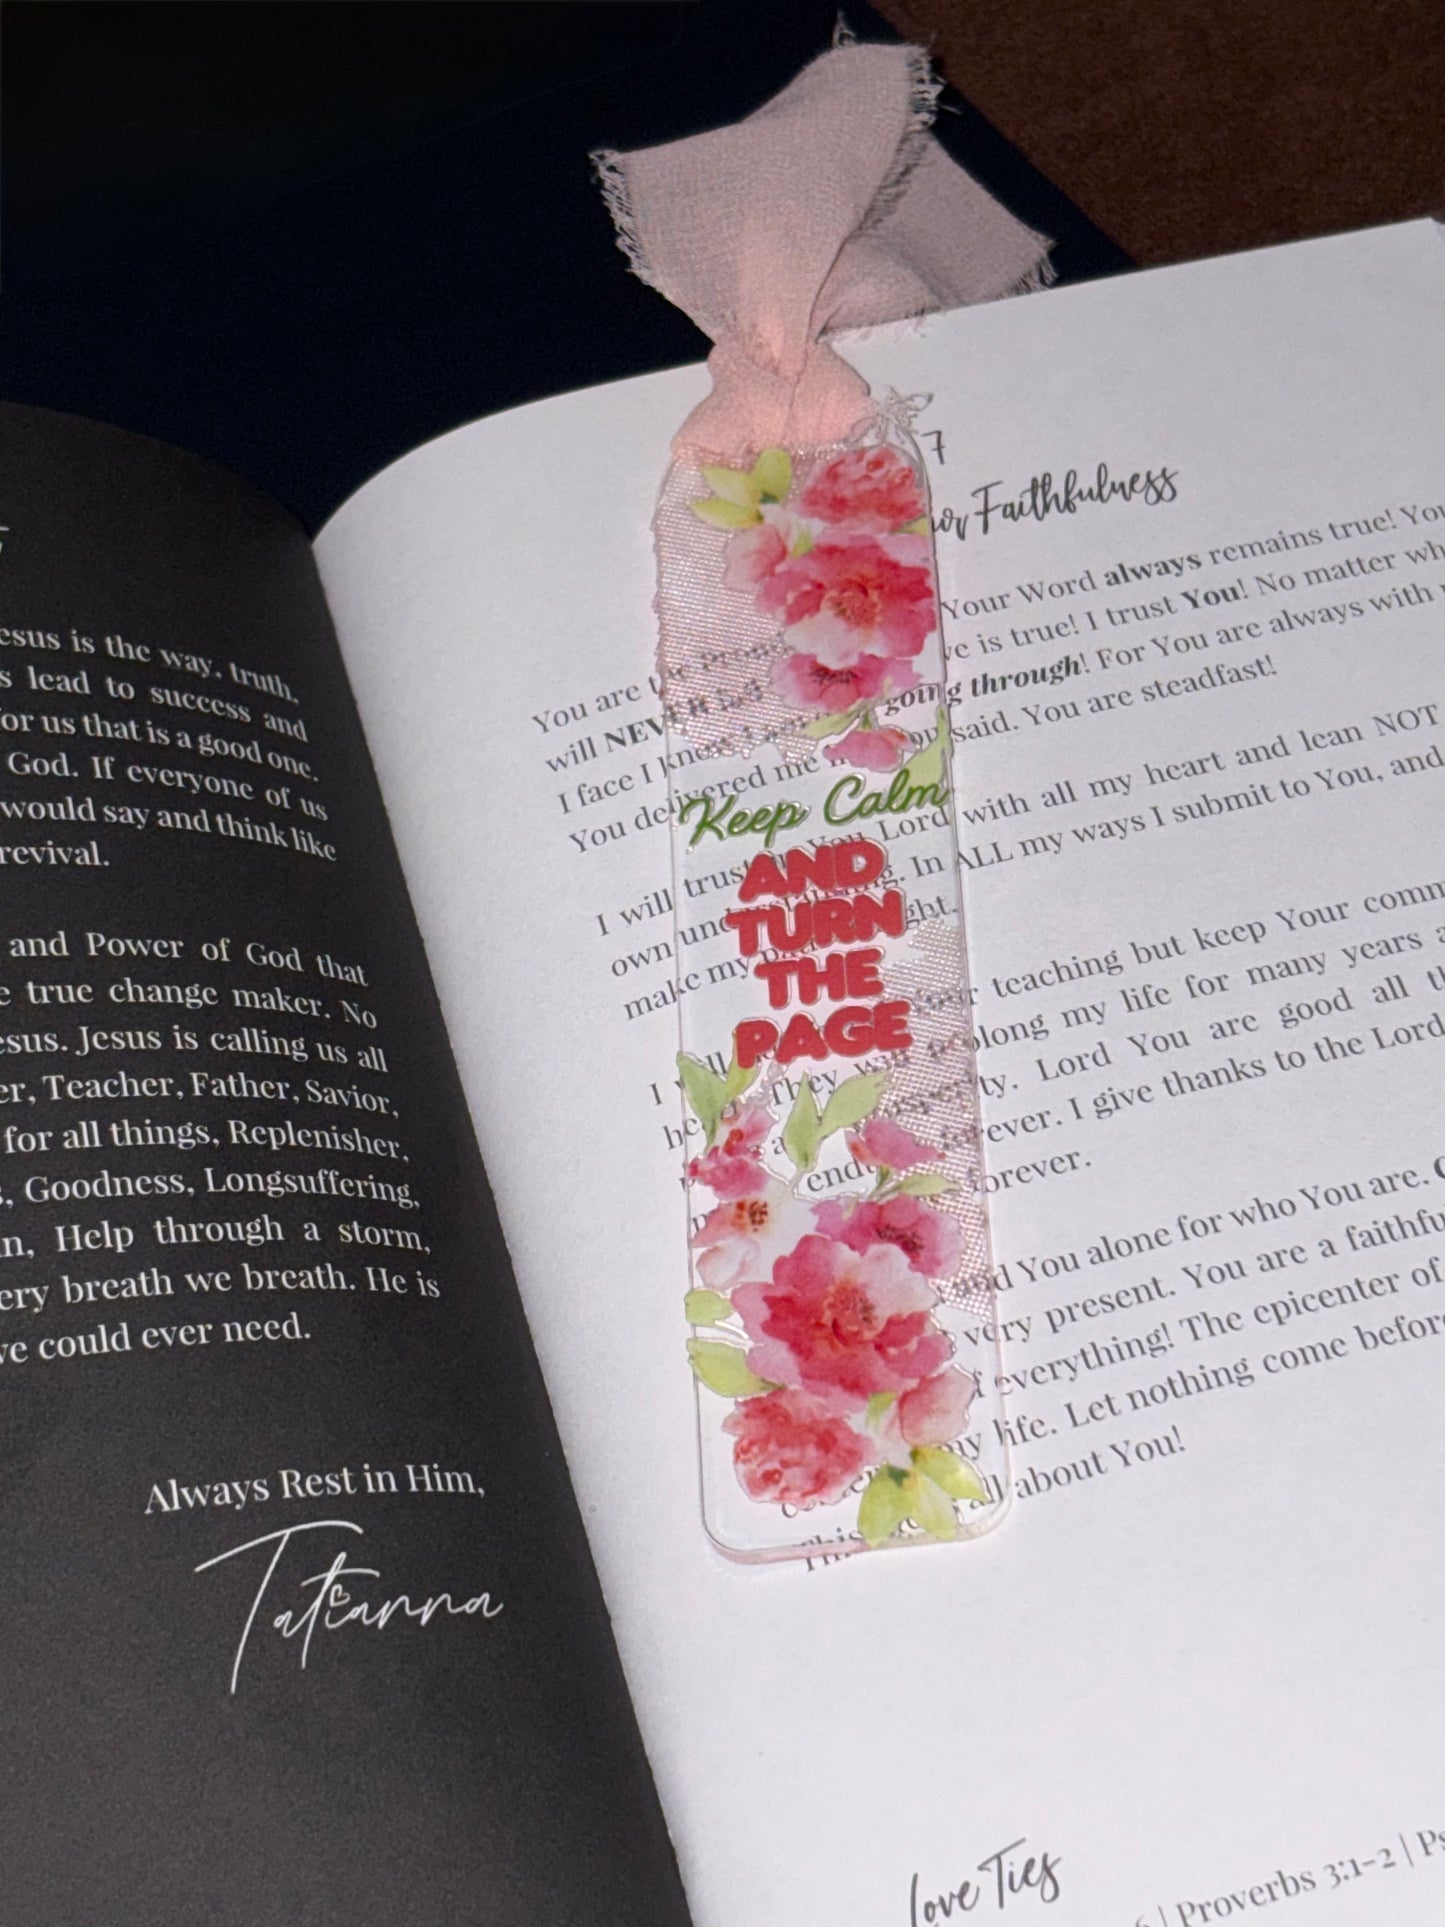 esus is the way, truth,
s lead to success and
for us that is a good one.
God. If everyone of us
would say and think like
revival.
and Power of God that
e true change maker. No
esus. Jesus is calling us all
er, Teacher, Father, Savior,
for all things, Replenisher,
s, Goodness, Longsuffering,
n, Help through a storm,
ery breath we breath. He is
we could ever need.
Always Rest in Him,
Tatianna
7
Faithfulness
Your Word always remains true! You
You are the ve is true! I trust You! No matter wh
will NEVER fail going through! For You are always with
I face I know I said. You are steadfast!
You delivered me
I will trust in You Lord with all my heart and lean NOT
own understanding. In ALL my ways I submit to You, and
make my path
I will your teaching but keep Your comm
They will prolong my life for many years a
prosperity. Lord You are good all th
forever. I give thanks to the Lord
endu forever.
and You alone for who You are.
very present. You are a faithfu
f everything! The epicenter of
my life. Let nothing come before
This all about You!
Keep Calm
AND
TURN
THE
PAGE
Love Ties
6 | Proverbs 3:1-2 | Ps